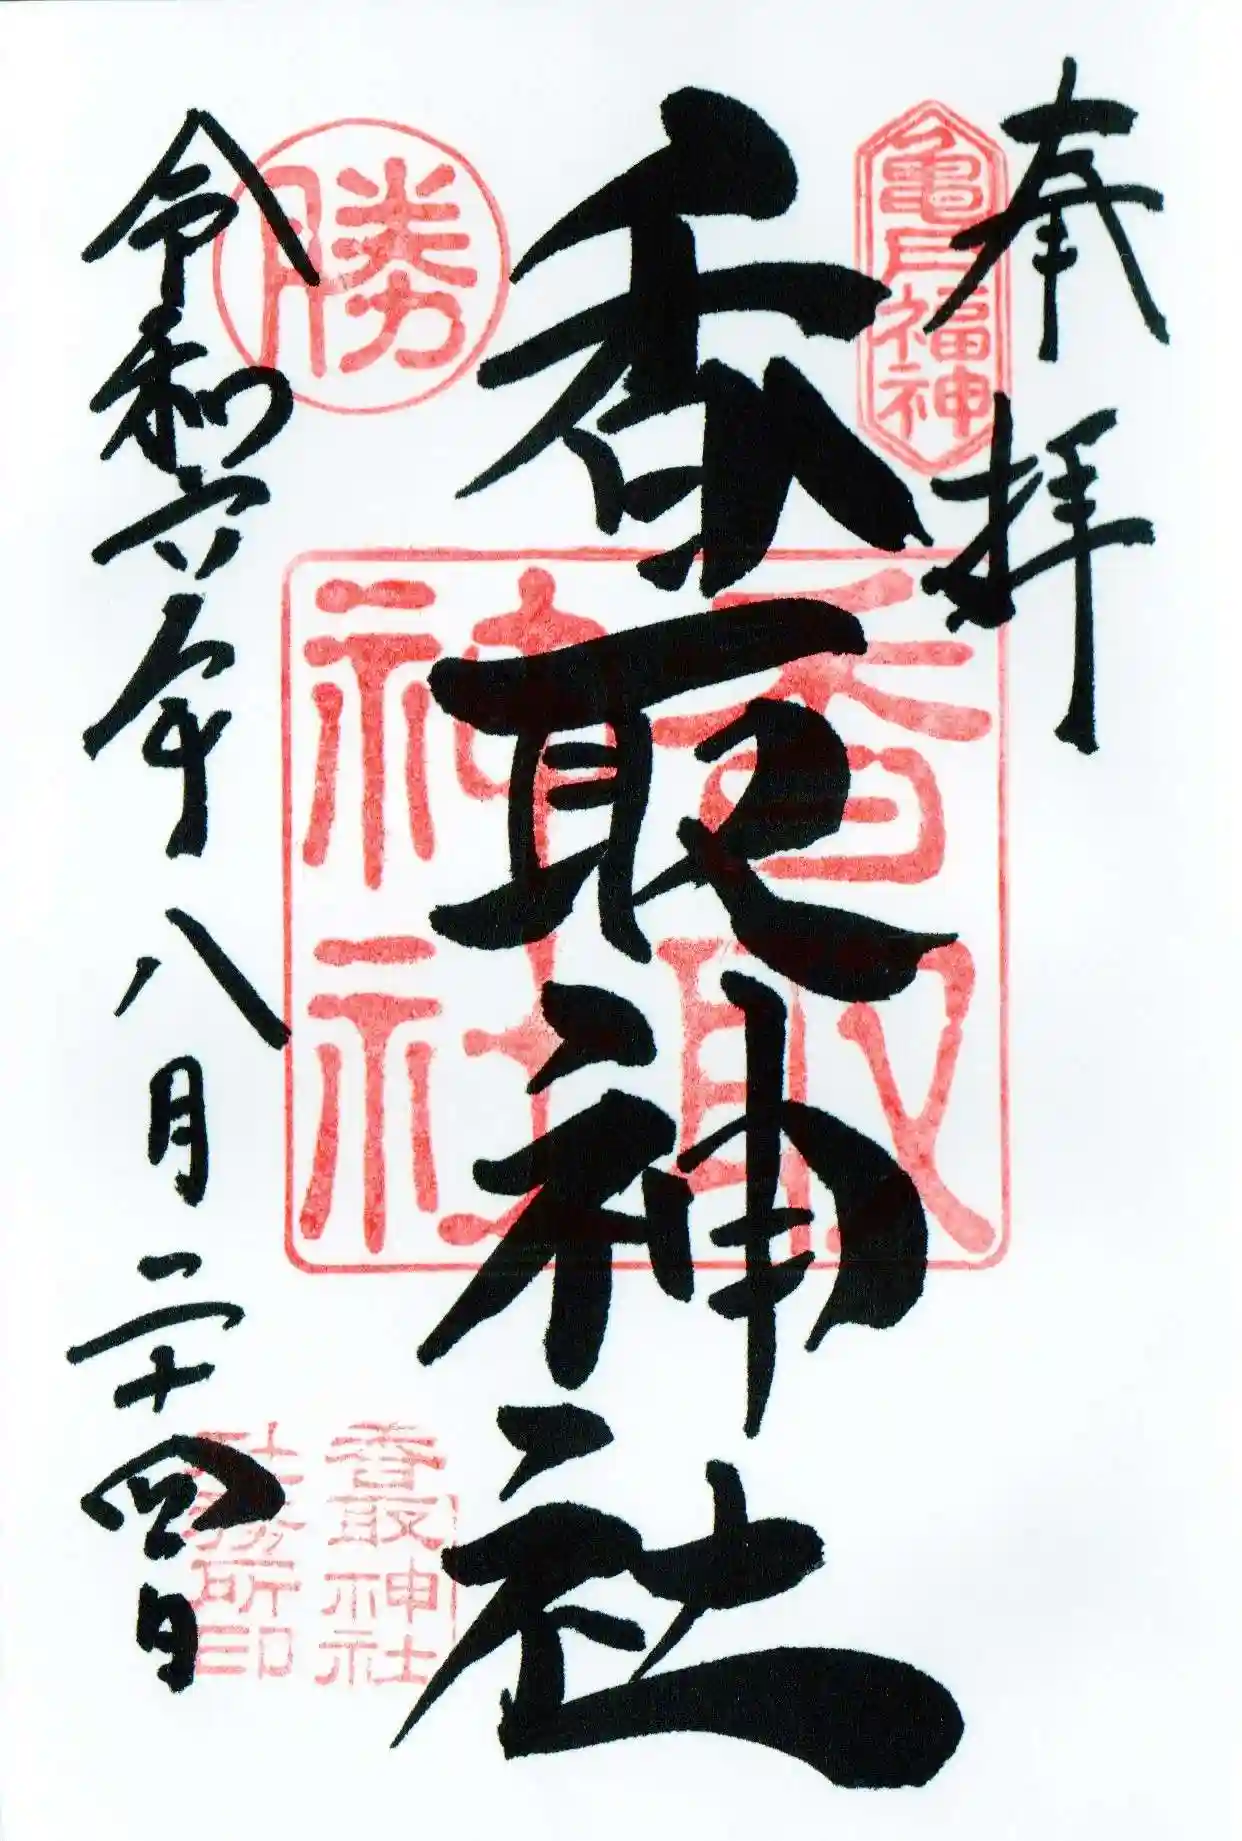 奉拝
亀戸福神
香取神社
香取神社
勝
令和六年八月二十四日
香取神社
社務所印